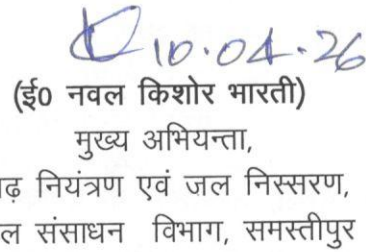 10.04.26
(ई0 नवल किशोर भारती)
मुख्य अभियन्ता,
नियंत्रण एवं जल निस्सरण,
संसाधन विभाग, समस्तीपुर